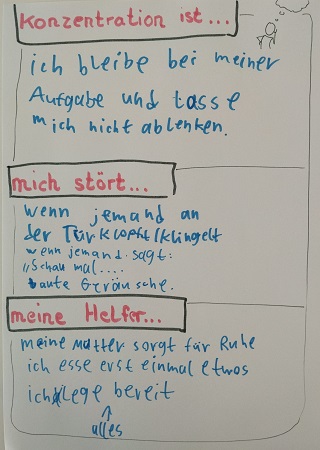 Konzentration ist...
ich bleibe bei meiner
Aufgabe und lasse
mich nicht ablenken.
mich stört...
wenn jemand an
der Tür klopft/klingelt
wenn jemand sagt:
„Schau mal....
laute Geräusche.
meine Helfer...
meine Mutter sorgt für Ruhe
ich esse erst einmal etwas
ich lege bereit
alles